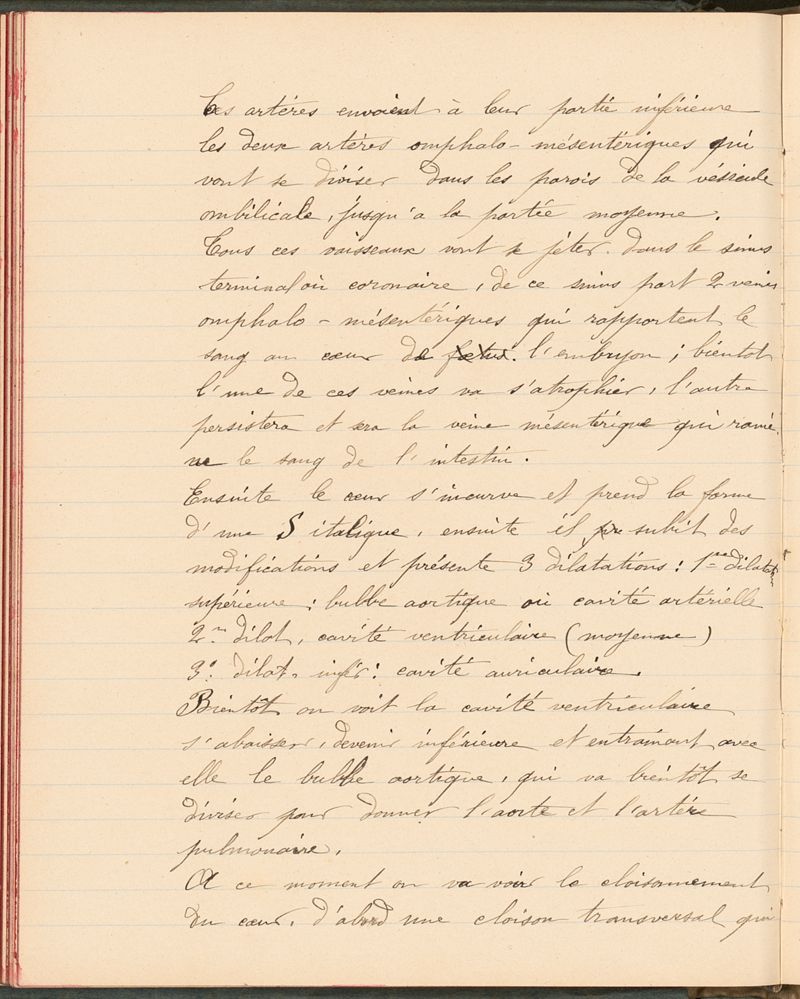 Ces artères envoient à leur partie inférieure
les deux artères omphalo-mésentériques qui
vont se diviser dans les parois de la vésicule
ombilicale, jusqu'a la partie moyenne.
Tous ces vaisseaux vont se jeter dans le sinus
terminal où coronaire, de ce sinus part 2 veines
omphalo-mésentériques qui rapportent le
sang au cœur de l'embryon ; bientot
l'une de ces veines va s'atrophier, l'autre
persistera et sera la veine mésentérique qui ramè-
ne le sang de l'intestin.
Ensuite le cœur s'incurve et prend la forme
d'une S italique, ensuite il subit des
modifications et présente 3 dilatations : 1re dilatat
supérieure ; bulbe aortique où cavité artérielle
2.m dilat, cavité ventriculaire (moyenne)
3.o dilat. infér : cavité auriculaire.
Bientôt on voit la cavité ventriculaire
s'abaisser, devenir inférieure et entrainant avec
elle le bulbe aortique, qui va bientôt se
diviser pour donner l'aorte et l'artère
pulmonaire.
A ce moment on va voir le cloisonnement
du cœur, d'abord une cloison transversal qui